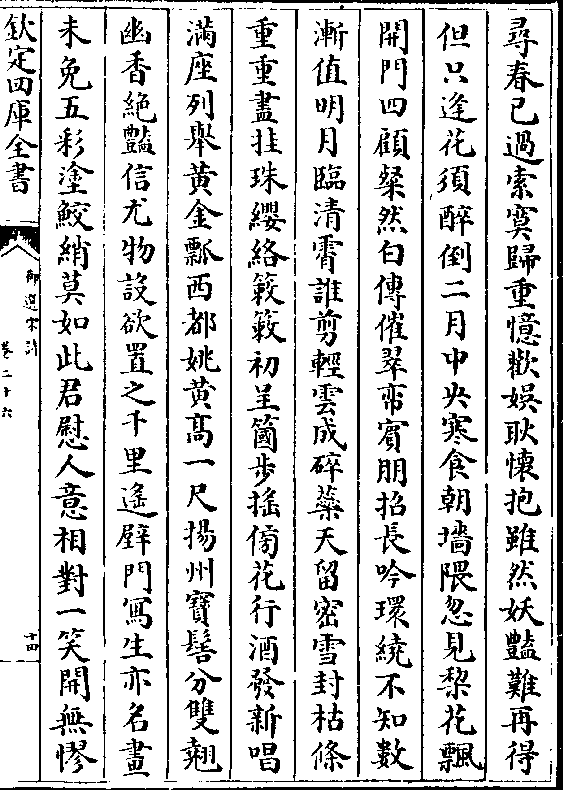 尋春已過索寞歸重憶歡娯耿懷抱雖然妖豔難再得
但只逢花須醉倒二月中央寒食朝墻隈忽見棃花飄
開門四顧粲然白傳催翠帟賓朋招長吟環繞不知數
漸值明月臨清霄誰剪輕雲成碎蘂天留密雪封枯條
重重盡挂珠纓絡簌簌初呈箇步揺傍花行酒發新唱
滿座列舉黄金瓢西都姚黄髙一尺揚州寳髻分雙翹
幽香絶豔信尤物設欲置之千里遙壁門寫生亦名畫
未免五彩塗鮫綃莫如此君慰人意相對一笑開無憀
欽定四庫全書
御選宋詩
卷二十六
十四